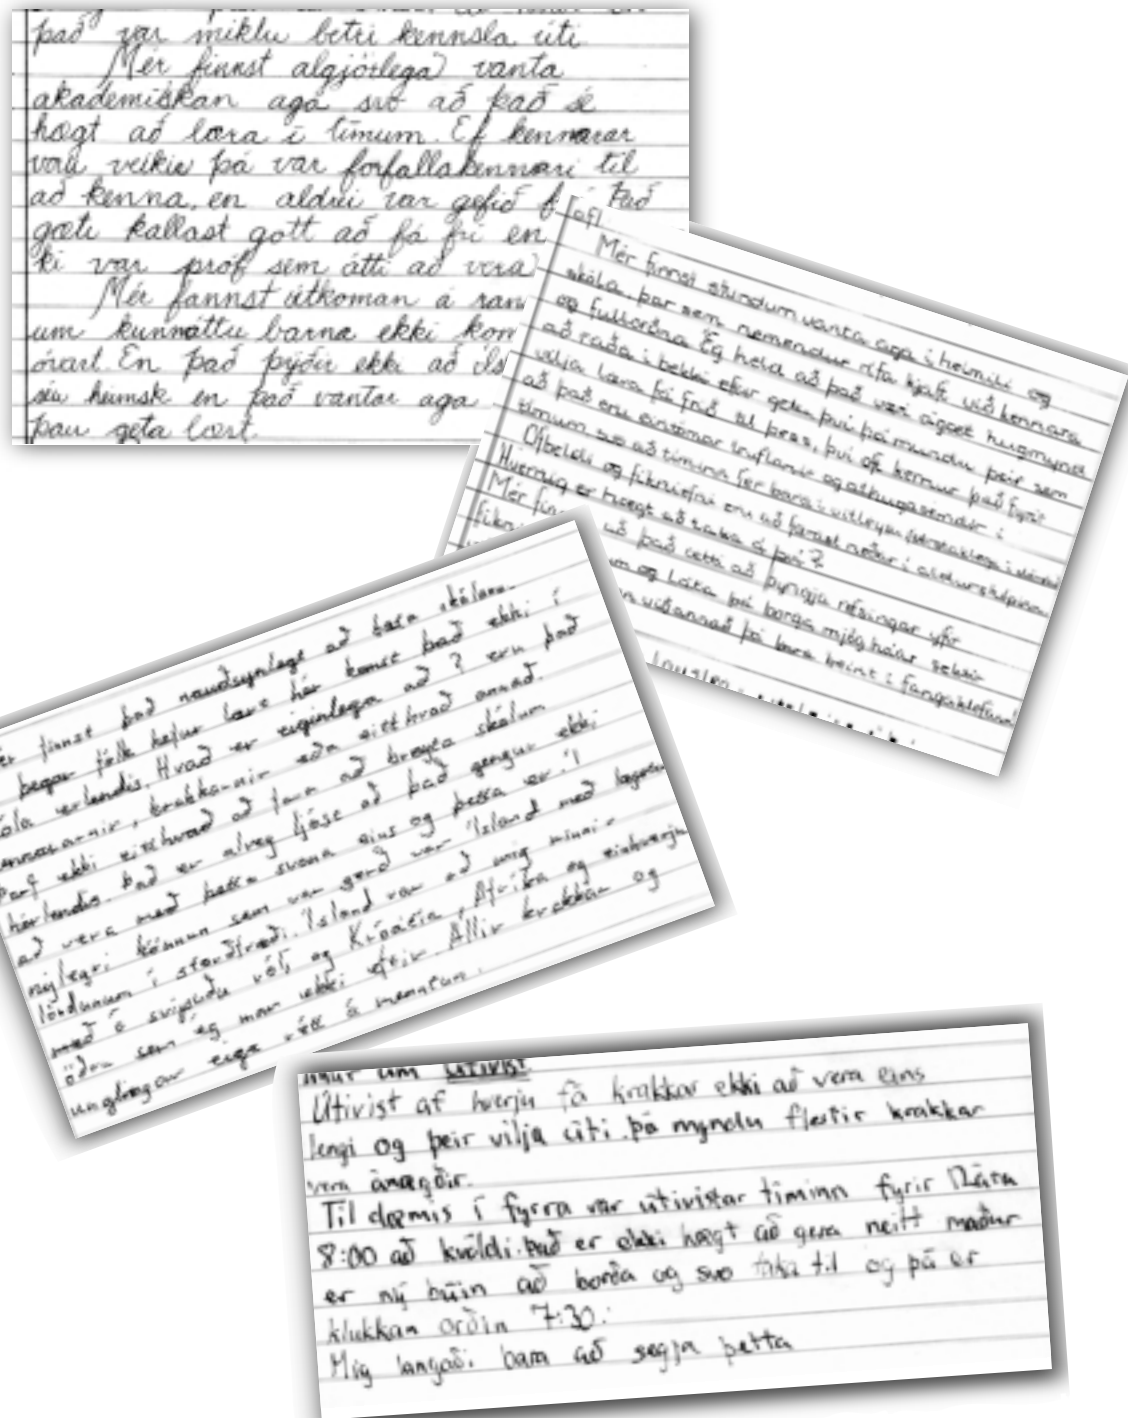 það var miklu betri kennsla úti
Mér finnst algjörlega vanta
akademískan aga svo að það sé
hægt að læra í tímum. Ef kennarar
voru veikir þá var forfallakennari til
að kenna, en aldrei var gefið f Það
gæti kallast gott að fá frí en
ki var próf sem átti að vera
Mér fannst útkoman á ran
um kunnáttu barna ekki kom
óvart. En það þýðir ekki að ís
séu heimsk en það vantar aga
þau geta lært.
Mér finnst stundum vanta aga í heimili og
skóla. þar sem nemendur rífa kjaft við kennara
og fullorðna Ég held að það væri ágæt hugmynd
að raða í bekki eftir getu því þá mundu þeir sem
vilja læra fá frið til þess, því oft kemur það fyrir
að það eru eintómar truflanir og athugasemdir í
tímum svo að tíminn fer bara í vitleysu
Ofbeldi og fíkniefni eru að færast neðar í aldurshópinn
Hvernig er hægt að taka á því?
Mér fin að það ætti að þyngja refsingar yfir
fíkn m og láta þá borga mjög háar sektir
n við annað þá bara beint í fangaklefann!
ér finnst það nauðsynlegt að bæta skólana.
þegar fólk hefur lært hér kemst það ekki í
óla erlendis. Hvað er eiginlega að? eru það
ennararnir, krakkarnir eða eitthvað annað.
þarf ekki eitthvað að fara að breyta skólum
hérlendis. Það er alveg ljóst að það gengur ekki
að vera með þetta svona eins og þetta er. Í
nýlegri könnun sem var gerð var Ísland með lægstu
löndunum í stærðfræði. Ísland var að mig minnir
með á svipuðu róli og Króatía, Afríka og einhverju
öðru sem ég man ekki eftir. Allir krakkar og
unglingar eiga rétt á menntun.
um útivist.
Útivist af hverju fá krakkar ekki að vera eins
lengi og þeir vilja úti. þá myndu flestir krakkar
vera ánægðir.
Til dæmis í fyrra var útivistar tíminn fyrir 12ára
8:00 að kvöldi. það er ekki hægt að gera neitt maður
er ný búin að borða og svo taka til og þá er
klukkan orðin 7:30.
Mig langaði bara að segja þetta